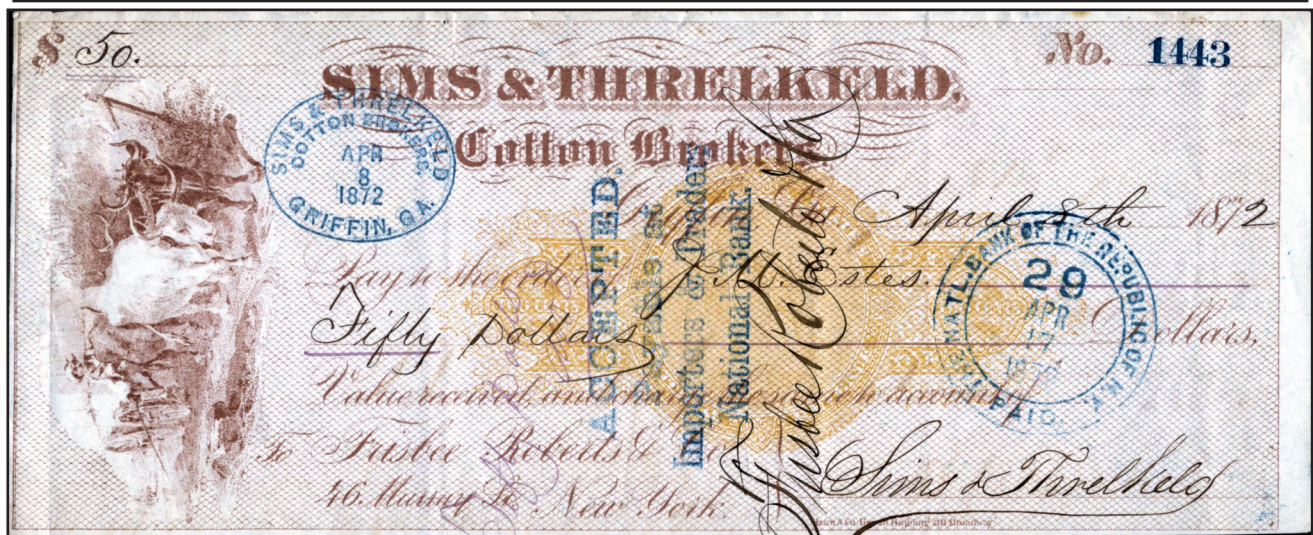 $ 50.
No. 1443
SIMS & THRELKELD,
Cotton Brokers.
SIMS & THRELKELD
COTTON BROKERS,
APR
8
1872
GRIFFIN, GA.
April 8th 1872
Pay to the order of J. M. Estes.
Fifty Dollars Dollars,
Value received, and charge the same to account of
To Frisbee Roberts &
46. Murray St. New York.
Sims & Threlkeld
ACCEPTED.
Payable at
Importers & Traders
National Bank.
Frisbee Roberts & Co
NATL. BANK OF THE REPUBLIC OF N.Y.
29
APR
17
PAID.
Building 211 Broadway